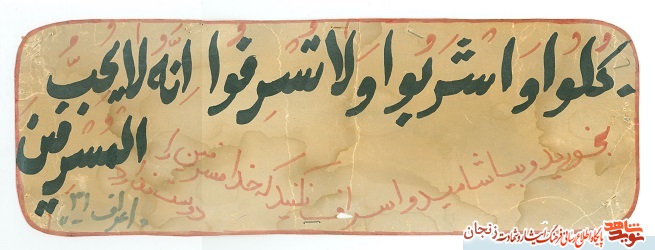 كُلُوا وَاشْرَبُوا وَلَا تُسْرِفُوا اِنَّهُ لَا يُحِبُّ
الْمُسْرِفِينَ
بخورید و بیاشامید و اسراف نکنید که خدا مسرفین را
دوست ندارد
اعراف ٣١
نوید شاهد پایگاه اطلاع رسانی فرهنگ ایثار و شهادت زنجان